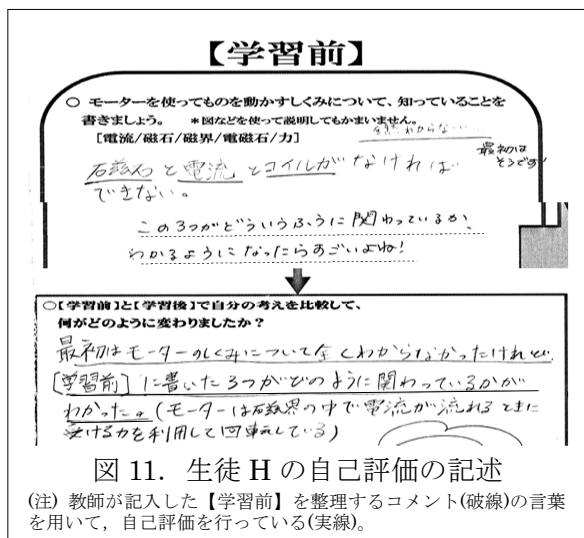 【学習前】
○ モーターを使ってものを動かすしくみについて、知っていることを
書きましょう。 ＊図などを使って説明してもかまいません。
[電流/磁石/磁界/電磁石/力]
全然わからない……
最初は
そうです!
石磁石と電流とコイルがなければ
できない。
この3つがどういうふうに関わっているか、
わかるようになったらすごいよね!
○【学習前】と【学習後】で自分の考えを比較して、
何がどのように変わりましたか？
最初はモーターのしくみについて全くわからなかったけれど、
[学習前]に書いた3つがどのように関わっているかが
わかった。(モーターは磁界の中で電流が流れるときに
受ける力を利用して回転している)
図 11. 生徒 H の自己評価の記述
(注) 教師が記入した【学習前】を整理するコメント(破線)の言葉
を用いて，自己評価を行っている(実線)。